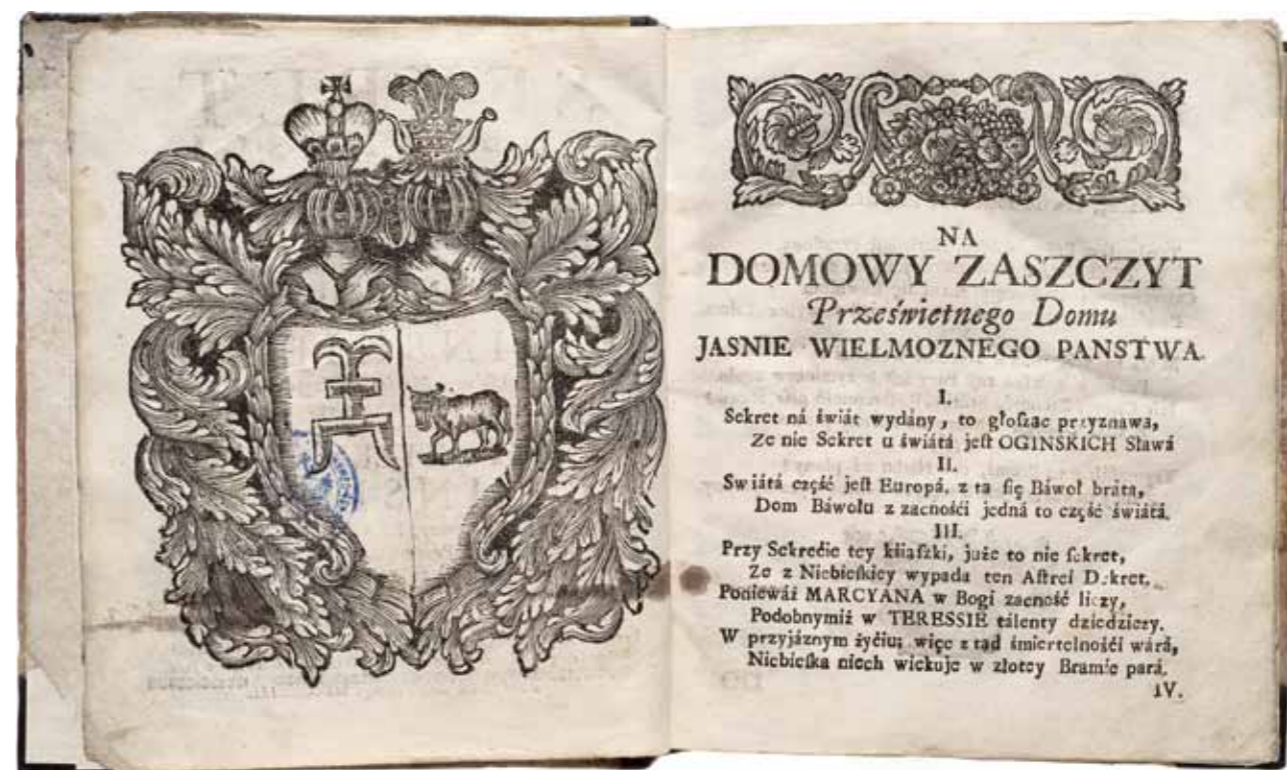 NA
DOMOWY ZASZCZYT
Prześwietnego Domu
JASNIE WIELMOZNEGO PANSTWA.
I.
Sekret ná świát wydány, to głoſzac przyznawa,
Ze nie Sekret u świátá jeſt OGINSKICH Sławá
II.
Swiátá część jeſt Europá, z ta ſię Báwoł bráta,
Dom Báwołu z zacnośći jedná to część świátá.
III.
Przy Sekrećie tey kśiąſzki, juże to nie ſekret,
Ze z Niebieſkiey wypada ten Aſtrei Dekret,
Poniewáż MARCYANA w Bogi zacność liczy,
Podobnymiż w TERESSIE tálenty dziedziczy.
W przyjáznym żyćiu; więc z tad śmiertelnośći wárá,
Niebieſka niech wiekuje w złotey Bramie pará.
IV.